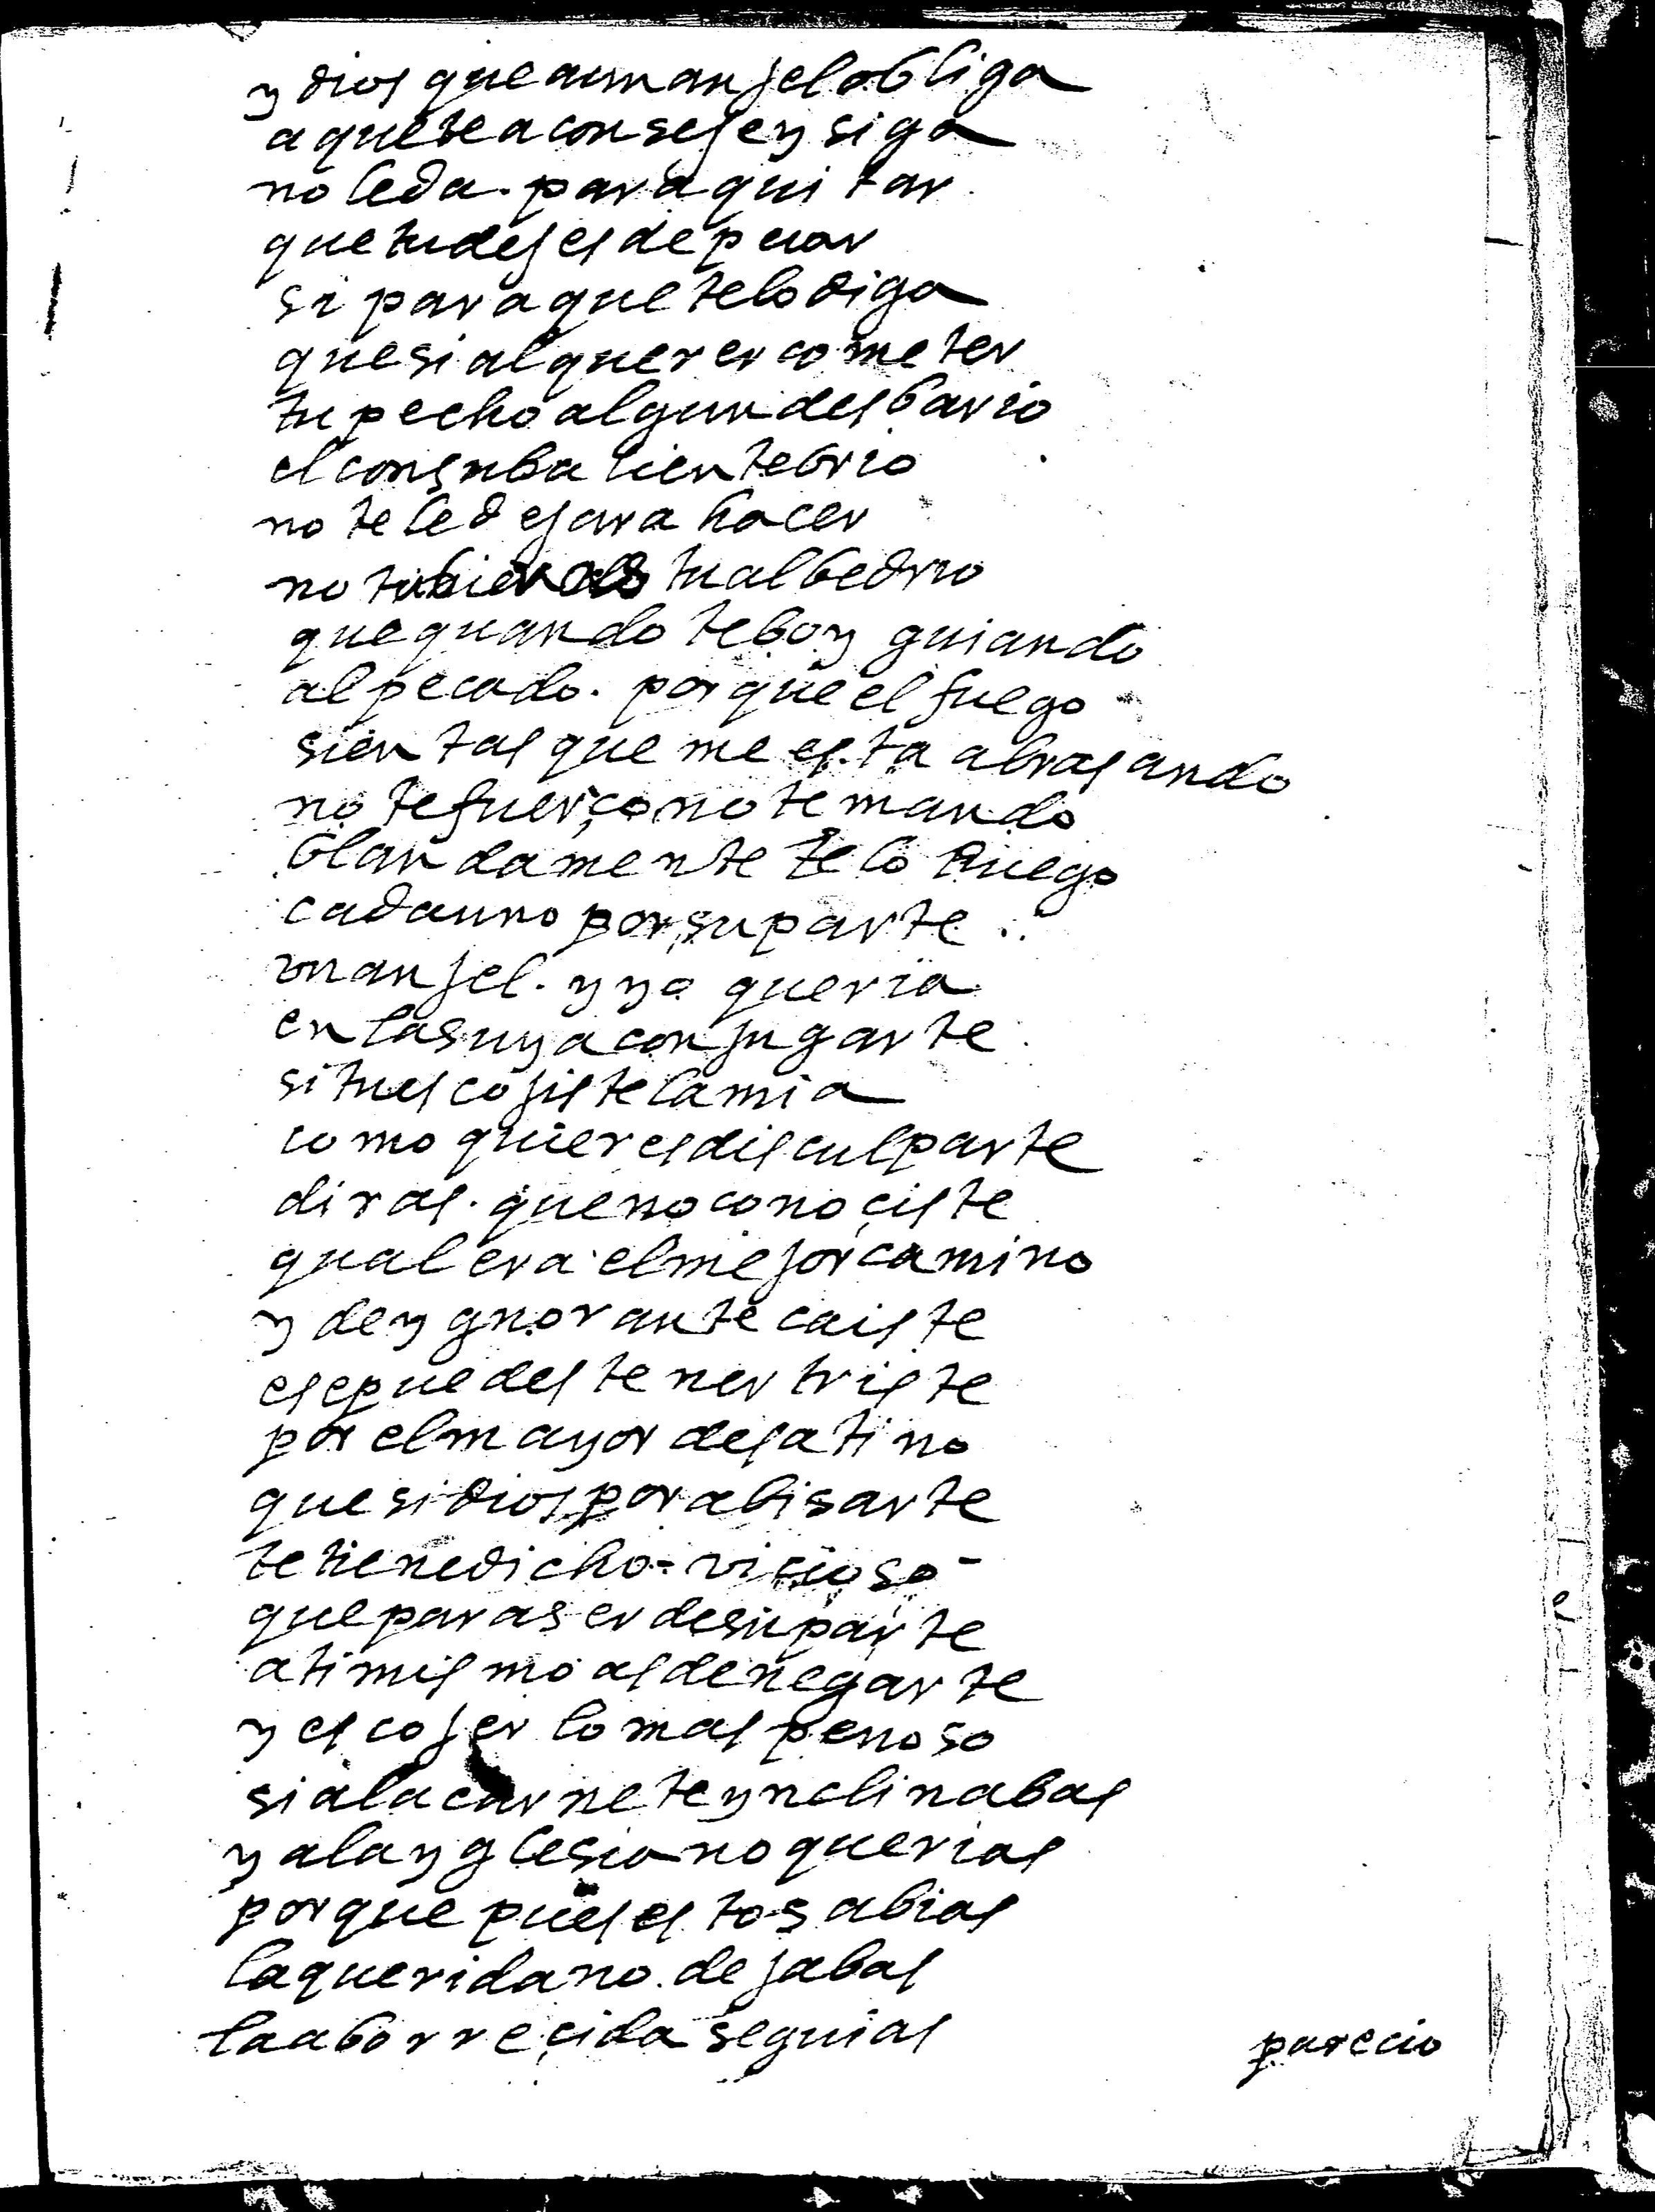 y dios que a un anjel obliga
a que te aconseje y siga
no le da. para quitar
que tu dejes de pecar
si para que te lo diga
que si al querer cometer
tu pecho algun desbario
el con su baliente brio
no te le dejara hacer
no tubiendo tu albedrio
que quando te boy guiando
al pecado. porque el fuego
sientas que me esta abrasando
no te fuerço no te mando
blandamente te lo Ruego
cada uno por su parte
vn anjel. y yo queria
en la suya conjugarte
si tu escojiste la mia
como quieres disculparte
diras. que no conoçiste
qual era el mejor camino
y de ygnorante caiste
ese puedes tener triste
por el mayor desatino
que si dios por abisarte
te tiene dicho = viçioso =
que para ser de su parte
a ti mismo as de negarte
y escojer lo mas penoso
si a la carne te ynclinabas
y a la yglesia no querias
porque pues esto sabias
la querida no. dejabas
la aborreçida seguias
parecio